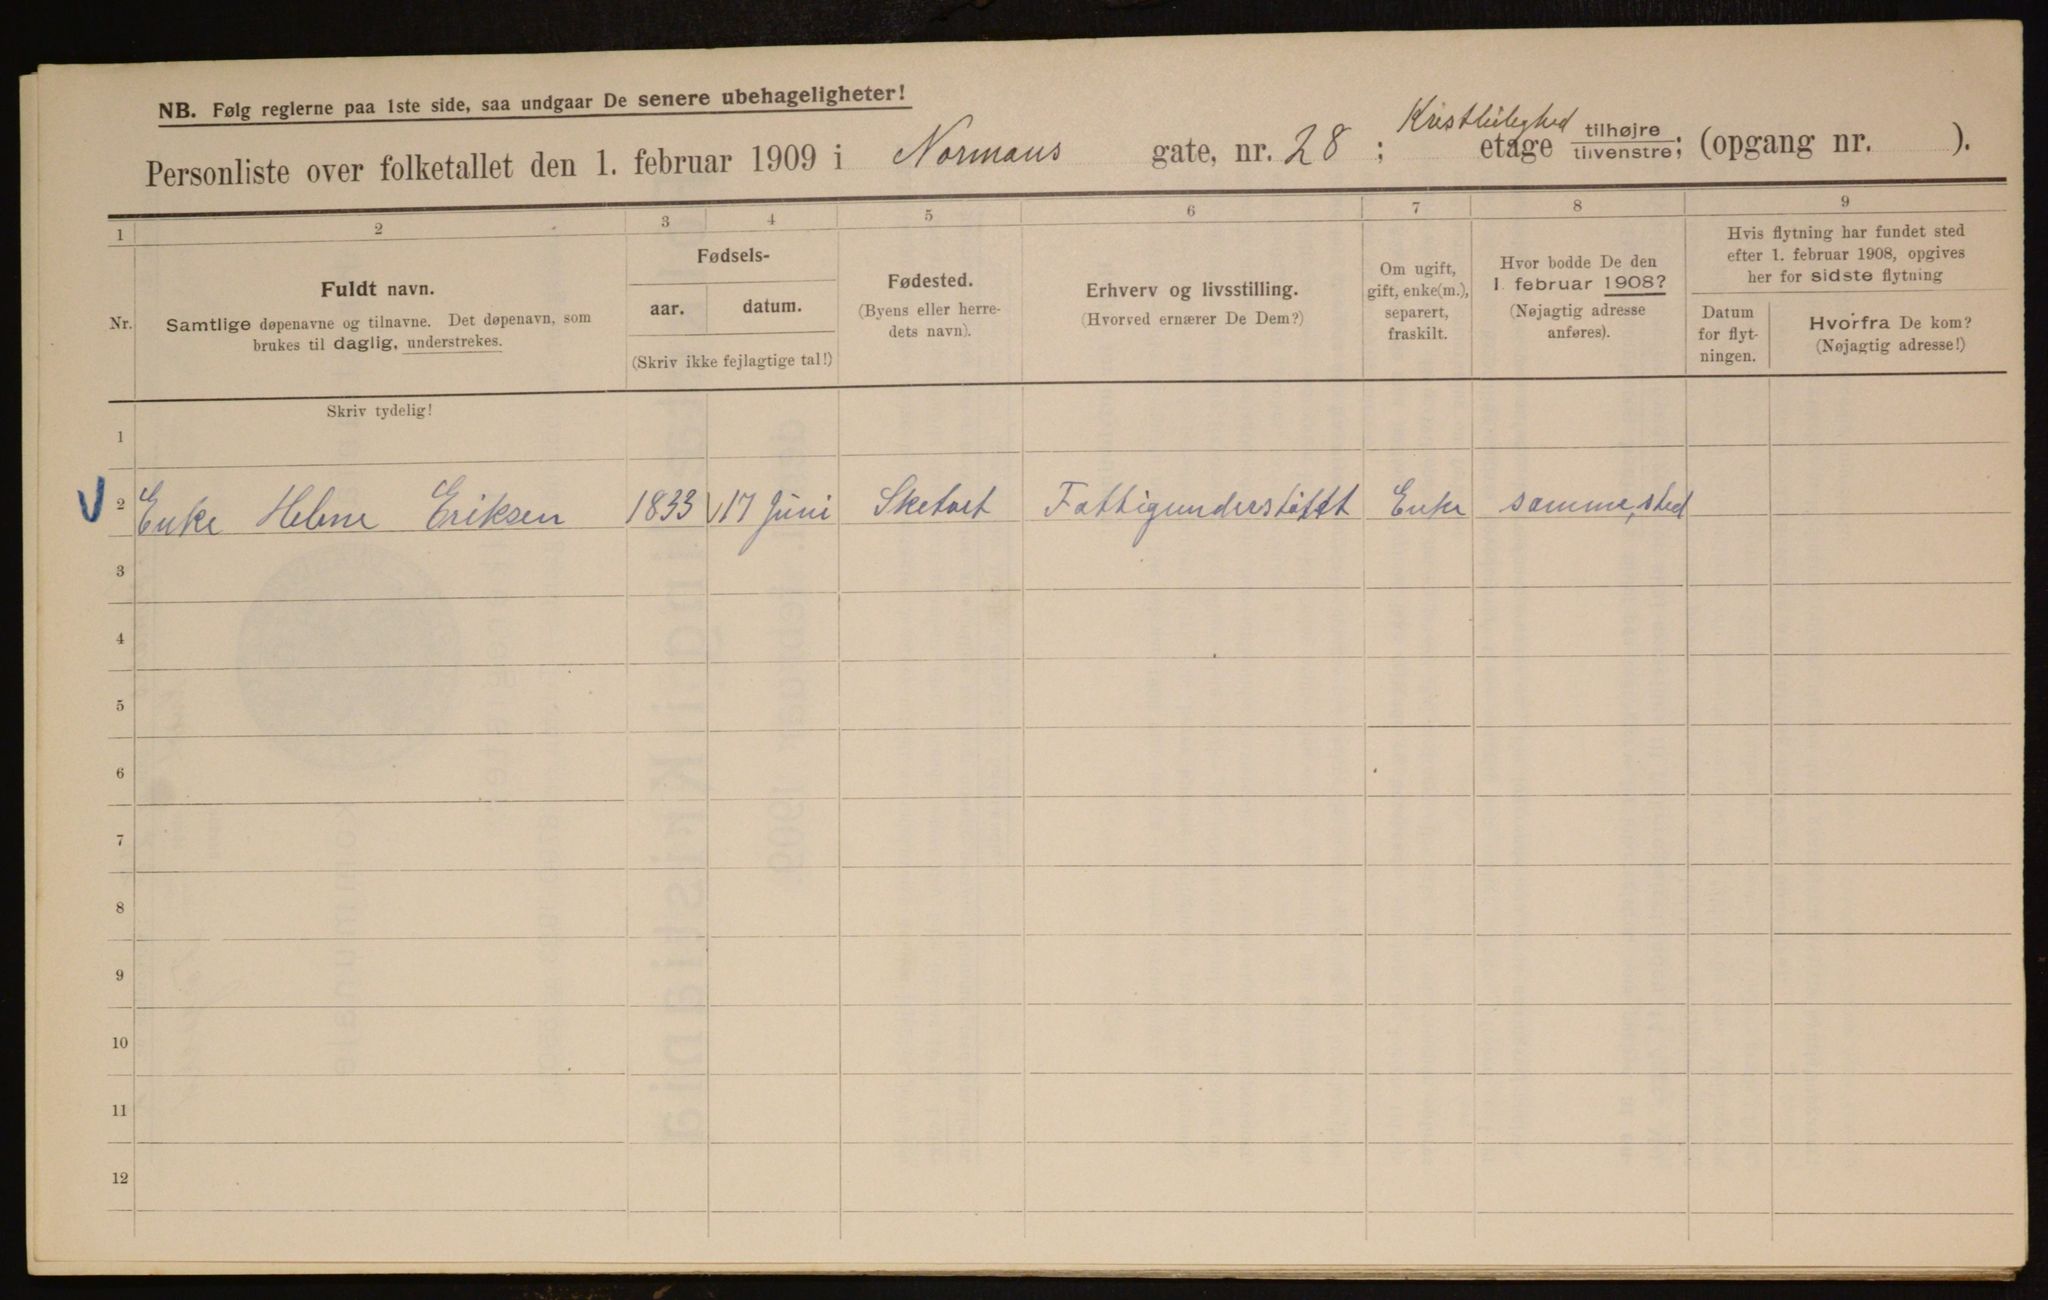 NB. Følg reglerne paa 1ste side, saa undgaar De senere ubehageligheter!
Personliste over folketallet den 1. februar 1909 i Normans gate, nr. 28 ; etage tilhøjre tilvenstre; (opgang nr. ).
1 2 3 4 5 6 7 8 9
Nr.
Fuldt navn.
Samtlige døpenavne og tilnavne. Det døpenavn, som
brukes til daglig, understrekes.
Fødsels-
aar. datum.
(Skriv ikke fejlagtige tal!)
Fødested.
(Byens eller herre-
dets navn).
Erhverv og livsstilling.
(Hvorved ernærer De Dem?)
Om ugift,
gift, enke(m.),
separert,
fraskilt.
Hvor bodde De den
1. februar 1908?
(Nøjagtig adresse
anføres).
Hvis flytning har fundet sted
efter 1. februar 1908, opgives
her for sidste flytning
Datum
for flyt-
ningen.
Hvorfra De kom?
(Nøjagtig adresse!)
Skriv tydelig!
1
2 Enke Helene Eriksen 1833 17 Juni Fattigunderstøttt Enke samme sted
3
4
5
6
7
8
9
10
11
12